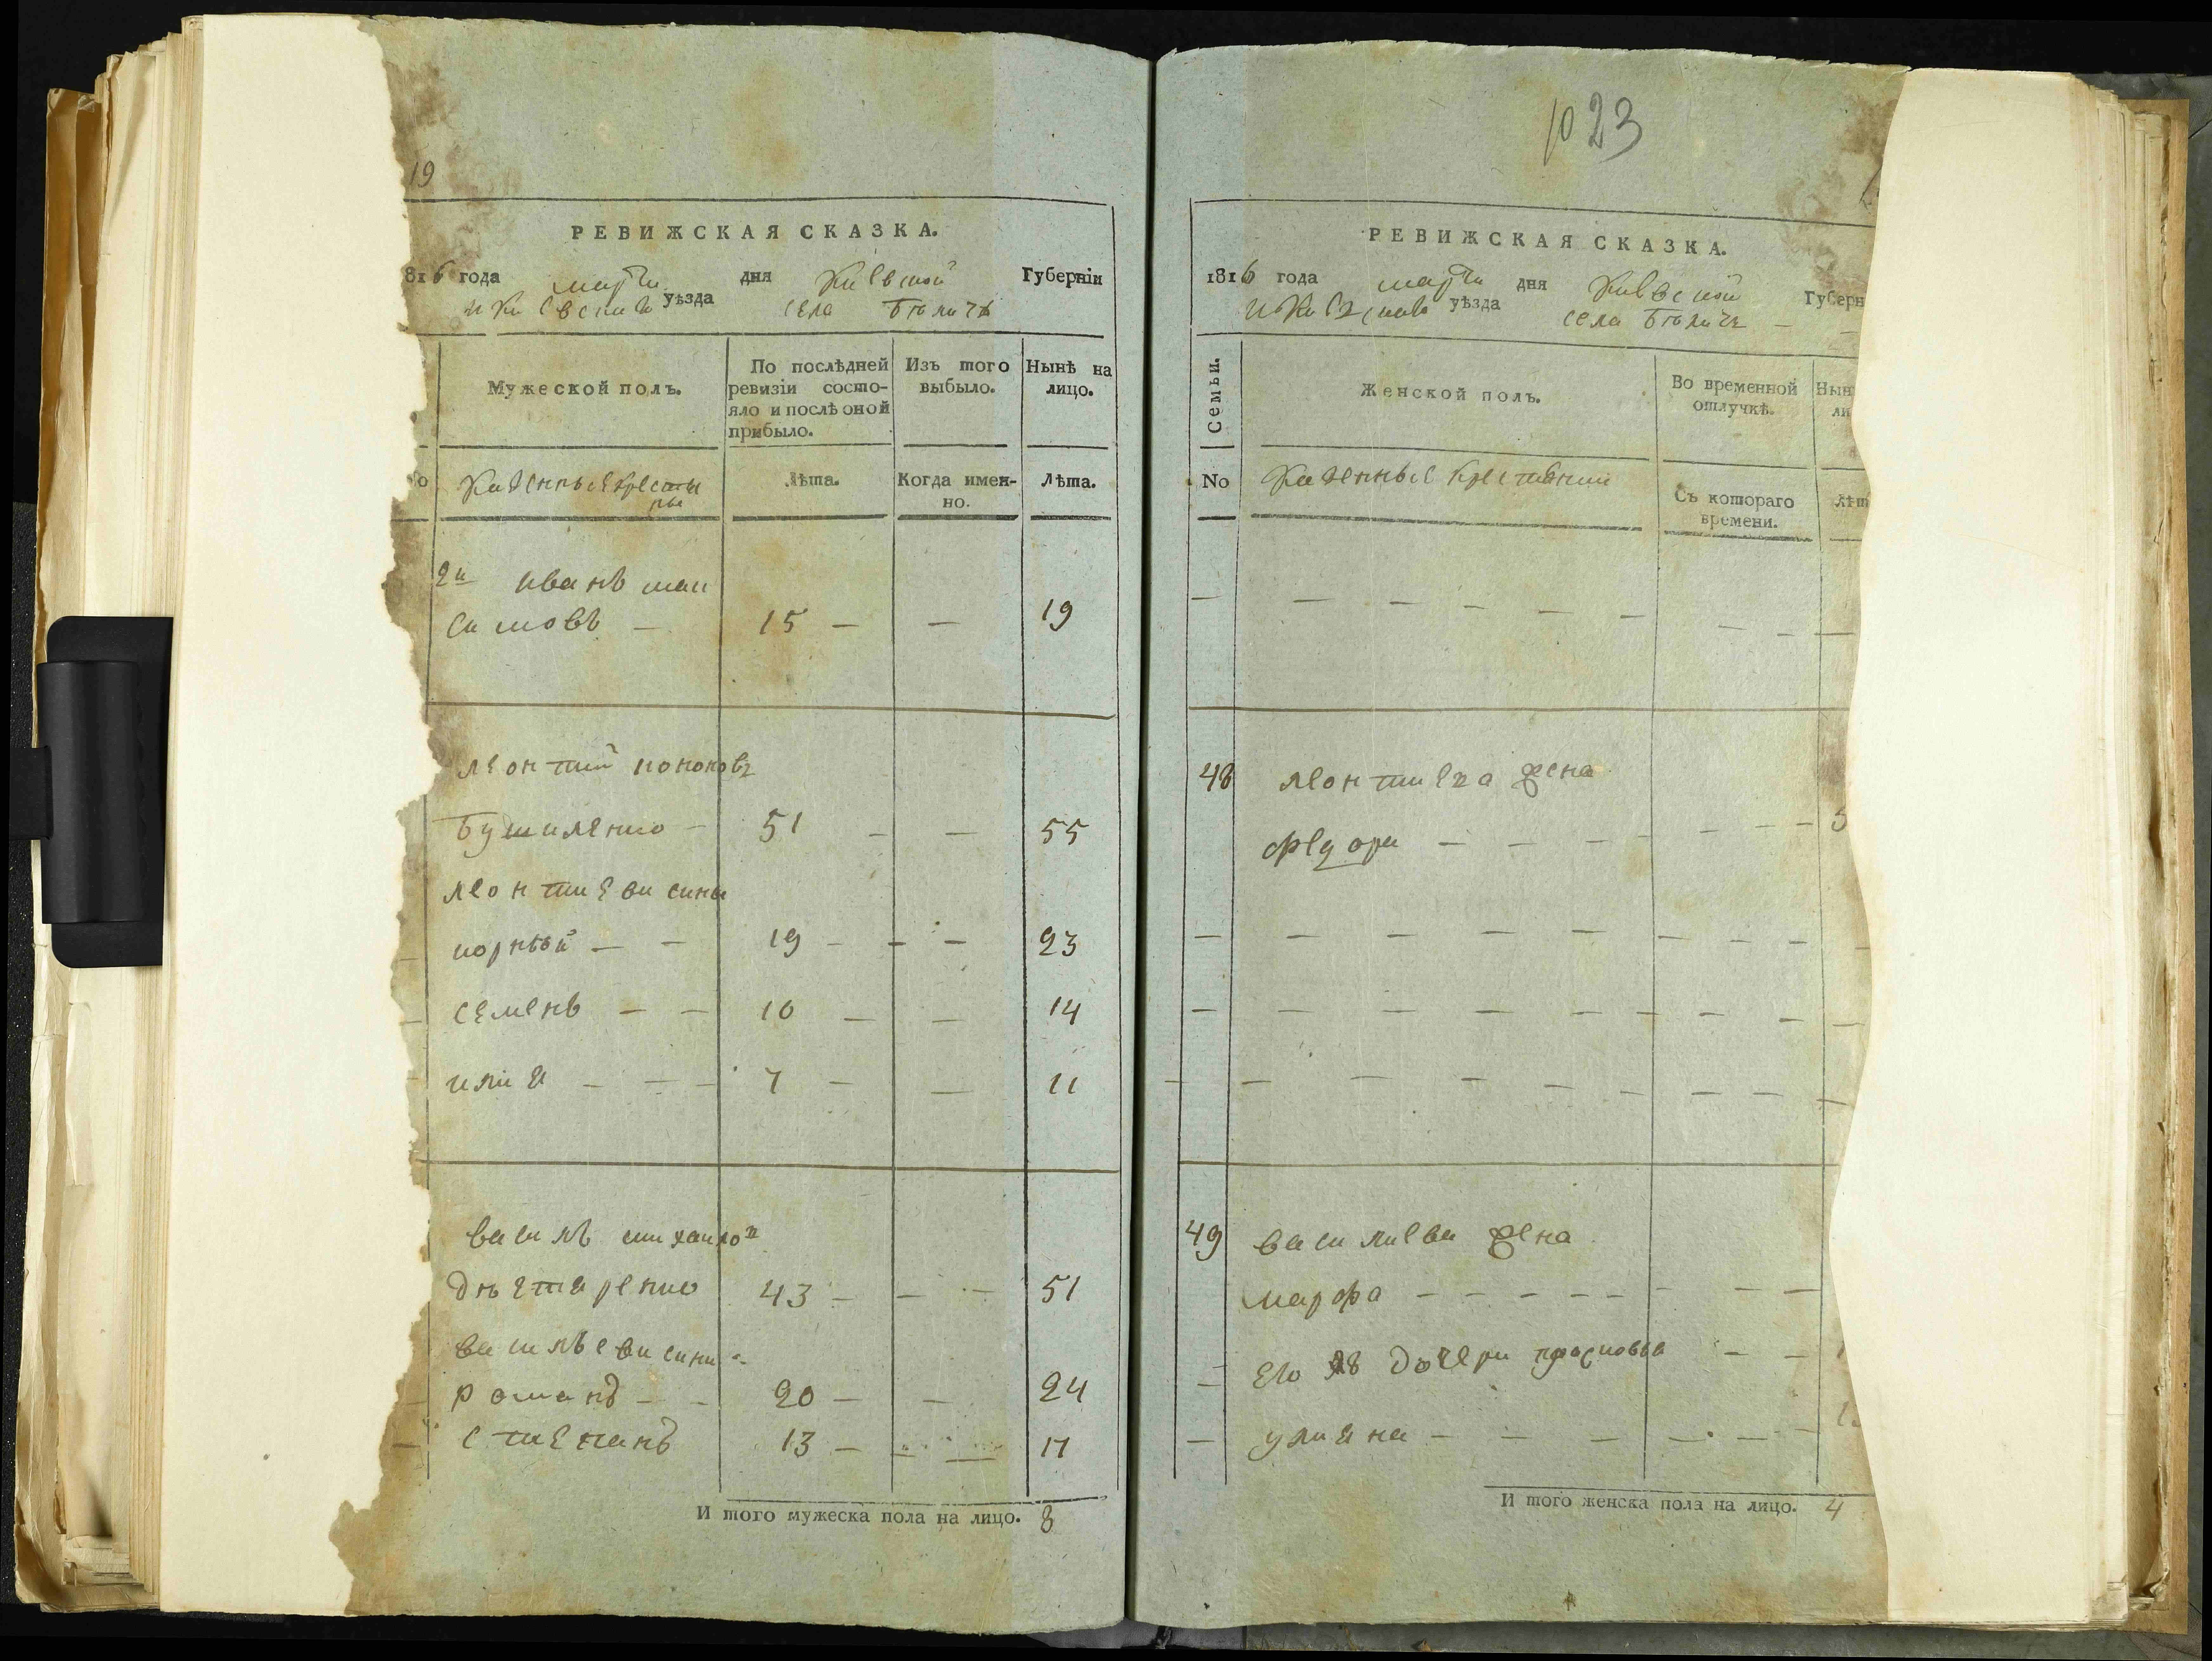 19
РЕВИЖСКАЯ СКАЗКА.
816 года марта дня Киевской Губерніи
и Киевскаго уѣзда села Бѣличъ
Мужеской полъ.
По послѣдней ревизіи состо-
яло и послѣ оной прибыло.
Изъ того выбыло.
Нынѣ на лицо.
Казенные крестья
не
Лѣта.
Когда имен-
но.
Лѣта.
2й иванъ мак
симовъ — 15 — — 19
леонтий кононовъ
Бушиленко — 51 — — 55
леонтиеви сины
корнѣй — — 19 — — — 23
семенъ — — 10 — — 14
илия — — — 7 — — 11
василь михаило
дегтяренко 43 — — — 51
васильеви сини
романъ — — 20 — — 24
степанъ 13 — — — 17
И того мужеска пола на лицо. 8
1023
РЕВИЖСКАЯ СКАЗКА.
1816 года марта дня Киевской Губерн
и Киевскаго уѣзда села Бѣличъ —
Семьи.
Женской полъ.
Во временной
отлучкѣ.
Нын
ли
No
Казенные крестьянки
Съ котораго
времени.
лѣт
48 леонтиева жена
федора — — — — — — 5
49 василиева жена
марфа — — — — — — — —
— его дочери прасковья — — 1
— улияна — — — — —
И того женска пола на лицо. 4